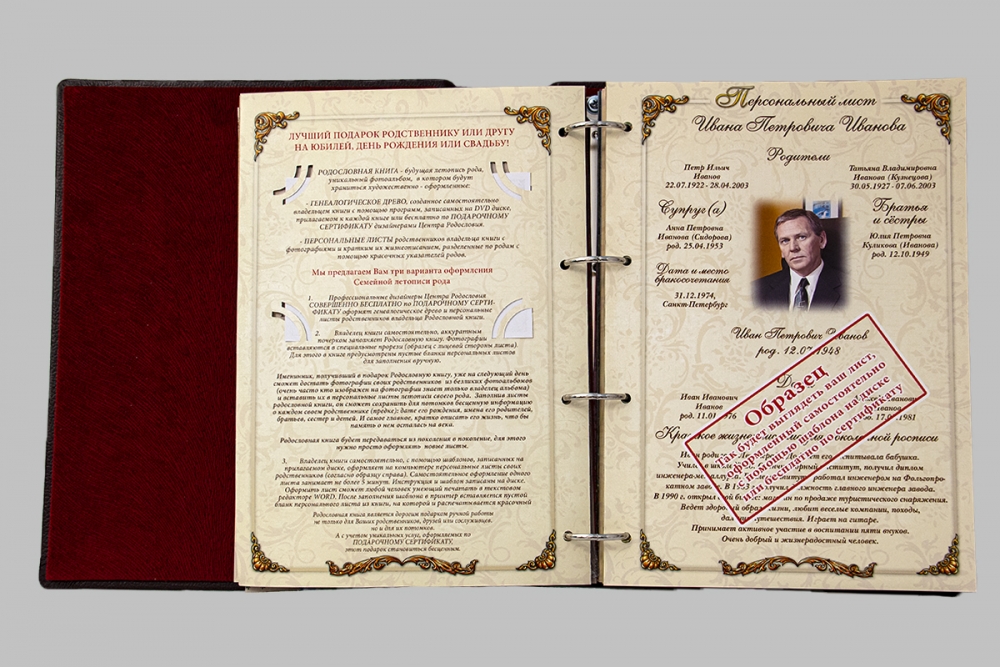 ЛУЧШИЙ ПОДАРОК РОДСТВЕННИКУ ИЛИ ДРУГУ
НА ЮБИЛЕЙ, ДЕНЬ РОЖДЕНИЯ ИЛИ СВАДЬБУ!
РОДОСЛОВНАЯ КНИГА - будущая летопись рода,
уникальный фотоальбом, в котором будут
храниться художественно - оформленные:
- ГЕНЕАЛОГИЧЕСКОЕ ДРЕВО, созданное самостоятельно
владельцем книги с помощью программ, записанных на DVD диске,
прилагаемом к каждой книге или бесплатно по ПОДАРОЧНОМУ
СЕРТИФИКАТУ дизайнерами Центра Родословия.
- ПЕРСОНАЛЬНЫЕ ЛИСТЫ родственников владельца книги с
фотографиями и кратким их жизнеописанием, разделенные по родам с
помощью красочных указателей родов.
Мы предлагаем Вам три варианта оформления
Семейной летописи рода
1. Профессиональные дизайнеры Центра Родословия
СОВЕРШЕННО БЕСПЛАТНО по ПОДАРОЧНОМУ СЕРТИ-
ФИКАТУ оформят генеалогическое древо и персональные
листы родственников владельца Родословной книги.
2. Владелец книги самостоятельно, аккуратным
почерком заполняет Родословную книгу. Фотографии
вставляются в специальные прорези (образец с лицевой стороны листа).
Для этого в книге предусмотрены пустые бланки персональных листов
для заполнения вручную.
Именинник, получивший в подарок Родословную книгу, уже на следующий день
сможет достать фотографии своих родственников из безликих фотоальбомов
(очень часто кто изображен на фотографии знает только владелец альбома)
и вставить их в персональные листы летописи своего рода. Заполнив листы
родословной книги, он сможет сохранить для потомков бесценную информацию
о каждом своем родственнике (предке): дате его рождения, имена его родителей,
братьев, сестер и детей. И самое главное, кратко описать его жизнь, что бы
память о нем осталась на века.
Родословная книга будет передаваться из поколения в поколение, для этого
нужно просто оформлять новые листы.
3. Владелец книги самостоятельно, с помощью шаблонов, записанных на
прилагаемом диске, оформляет на компьютере персональные листы своих
родственников (согласно образцу справа). Самостоятельное оформление одного
листа занимает не более 5 минут. Инструкция и шаблон записаны на диске.
Оформить лист сможет любой человек умеющий печатать в текстовом
редакторе WORD. После заполнения шаблона в принтер вставляется пустой
бланк персонального листа из книги, на которой и распечатывается красочный
Родословная книга является дорогим подарком ручной работы
не только для Ваших родственников, друзей или сослуживцев,
но и для их потомков.
А с учетом уникальных услуг, оформляемых по
ПОДАРОЧНОМУ СЕРТИФИКАТУ,
этот подарок становиться бесценным.
Персональный лист
Ивана Петровича Иванова
Родители
Петр Ильич
Иванов
22.07.1922 - 28.04.2003
Татьяна Владимировна
Иванова (Кузнецова)
30.05.1927 - 07.06.2003
Супруг(а)
Анна Петровна
Иванова (Сидорова)
род. 25.04.1953
Братья
и сёстры
Юлия Петровна
Куликова (Иванова)
род. 12.10.1949
Дата и место
бракосочетания
31.12.1974,
Санкт-Петербург
Иван Петрович Иванов
род. 12.07.1948
Иван Иванович
Иванов
Образец
Так будет выглядеть ваш лист,
оформленный самостоятельно
с помощью шаблона на диске
или бесплатно по сертификату
воспитывала бабушка.
институт, получил диплом
работал инженером на Фольгопро-
катном заводе. должность главного инженера завода.
В 1990 г. по продаже туристического снаряжения.
Ведет любит веселые компании, походы,
путешествия. Играет на гитаре.
Принимает активное участие в воспитании пяти внуков.
Очень добрый и жизнерадостный человек.